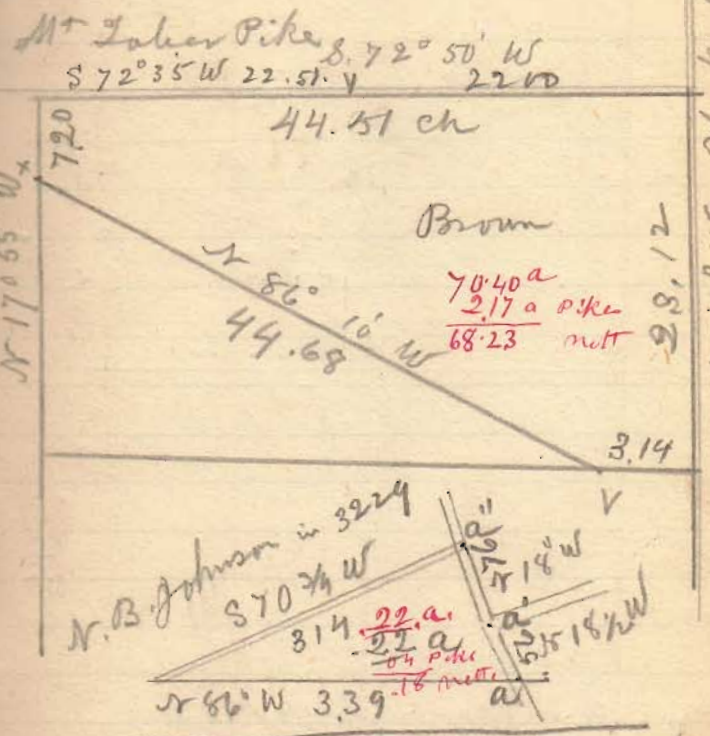 Mt Tabor Pike S. 72° 50' W
S 72° 35 W 22.51. V 22 00
44.51 ch
720
N 17° 55 W x
Brown
70.40 a
2.17 a Pikes
68.23 nett
23.12
N 86° 10' W
44.68
3.14
V
N. B. Johnson in 3229
S 70 3/4 W
314
.22.a.
.22 a
.04 Pike
.18 nett.
.76 a
N 18° W
.56 a
N 18 1/2 W
N 86° W 3.39
a